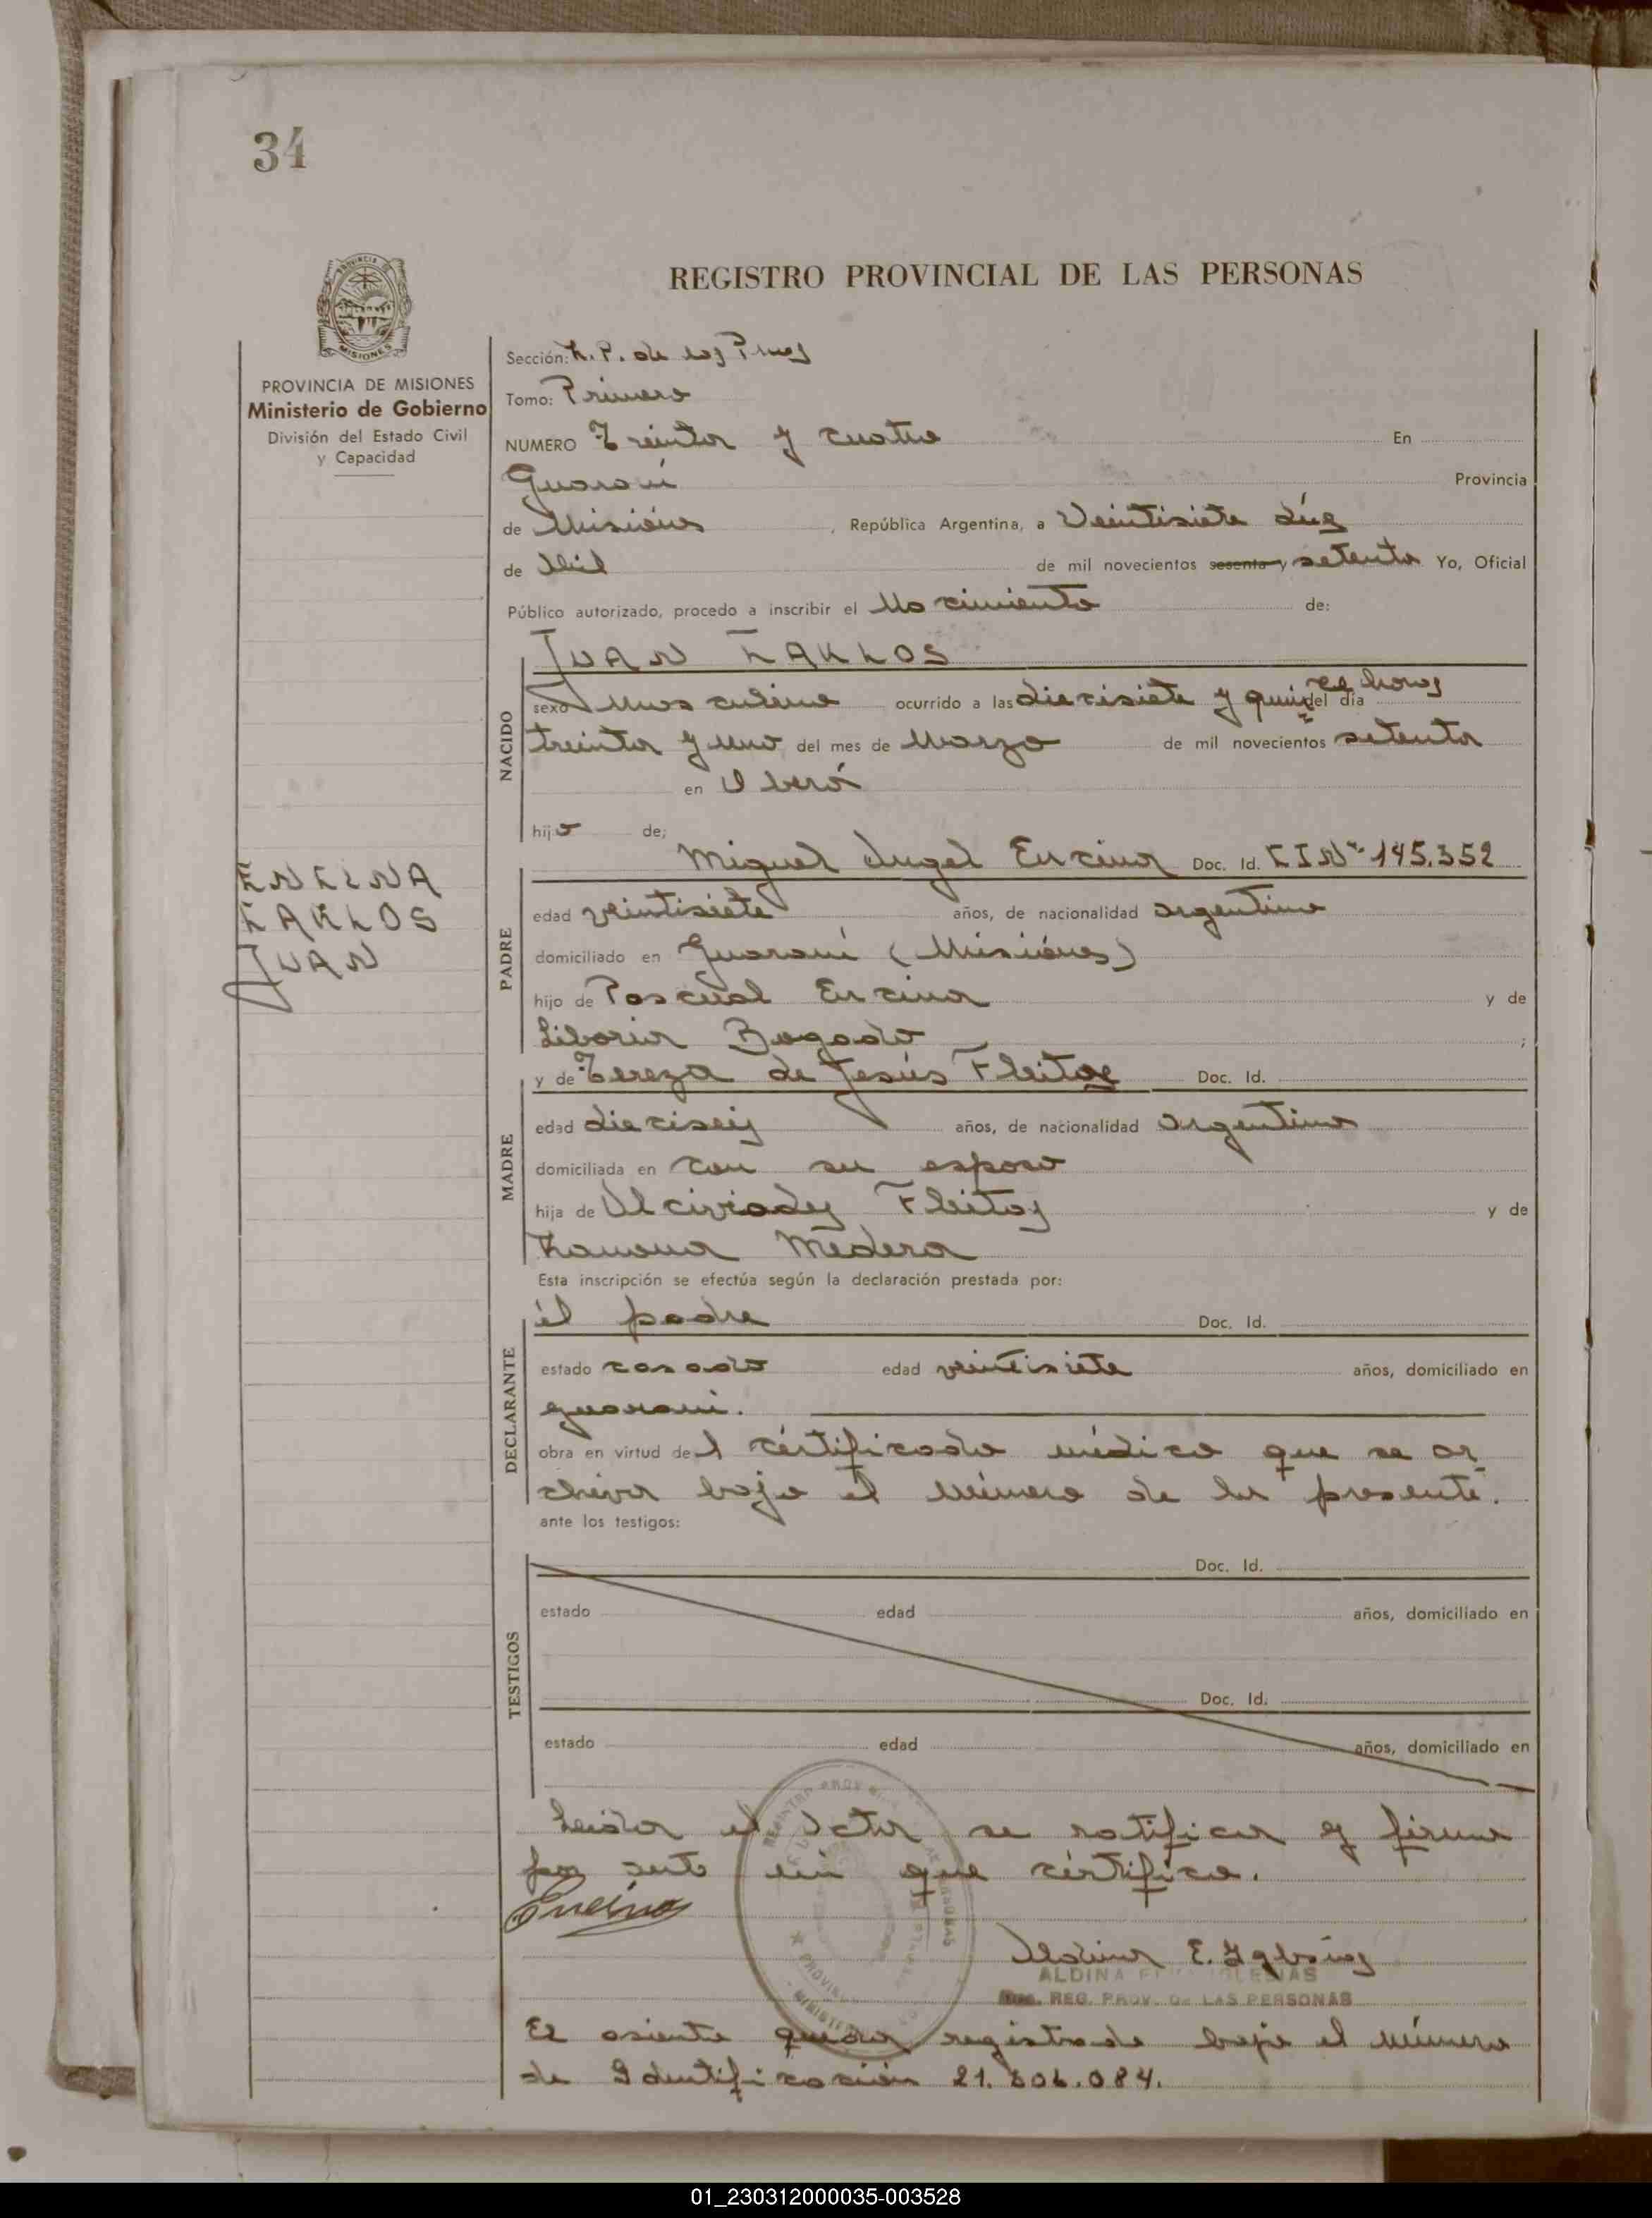 34
REGISTRO PROVINCIAL DE LAS PERSONAS
PROVINCIA DE MISIONES
Ministerio de Gobierno
División del Estado Civil
y Capacidad
Sección: de los
Tomo: Primero
NUMERO Treinta y cuatro En
Guaraní Provincia
de Misiónes, República Argentina, a Veintisiete díaz
de Abril de mil novecientos sesenta y setenta Yo, Oficial
Público autorizado, procedo a inscribir el Nacimiento de:
JUAN CARLOS
NACIDO
sexo Masculino ocurrido a las diecisiete y quince horas del día
treinta y uno del mes de Marzo de mil novecientos setenta
en Oberá
hijo de;
ENCINA
CARLOS
JUAN
Miguel Angel Encina Doc. Id. C I Nº 145.352
PADRE
edad veintisiete años, de nacionalidad argentina
domiciliado en Guaraní (Misiónes)
hijo de Pascual Encina y de
Liboria Bogado ;
y de Tereza de Jesús Fleitas Doc. Id.
MADRE
edad dieciseis años, de nacionalidad argentina
domiciliada en con su esposo
hija de Alciviades Fleitas y de
Ramona Medera
Esta inscripción se efectúa según la declaración prestada por:
él padre Doc. Id.
DECLARANTE
estado casado edad veintisiete años, domiciliado en
guarani.
obra en virtud del cértificado médico que se ar
chiva bajo el número de la presente.
ante los testigos:
TESTIGOS
Doc. Id.
estado edad años, domiciliado en
Doc. Id.
estado edad años, domiciliado en
Leida el acta se ratifica y firma
por ante mi que cértifico.
Encina
Aldina E. Iglesias
ALDINA IGLESIAS
REG. PROV. De LAS PERSONAS
El asiento queda registrado bajo el número
de Identificación 21.
01_230312000035-003528